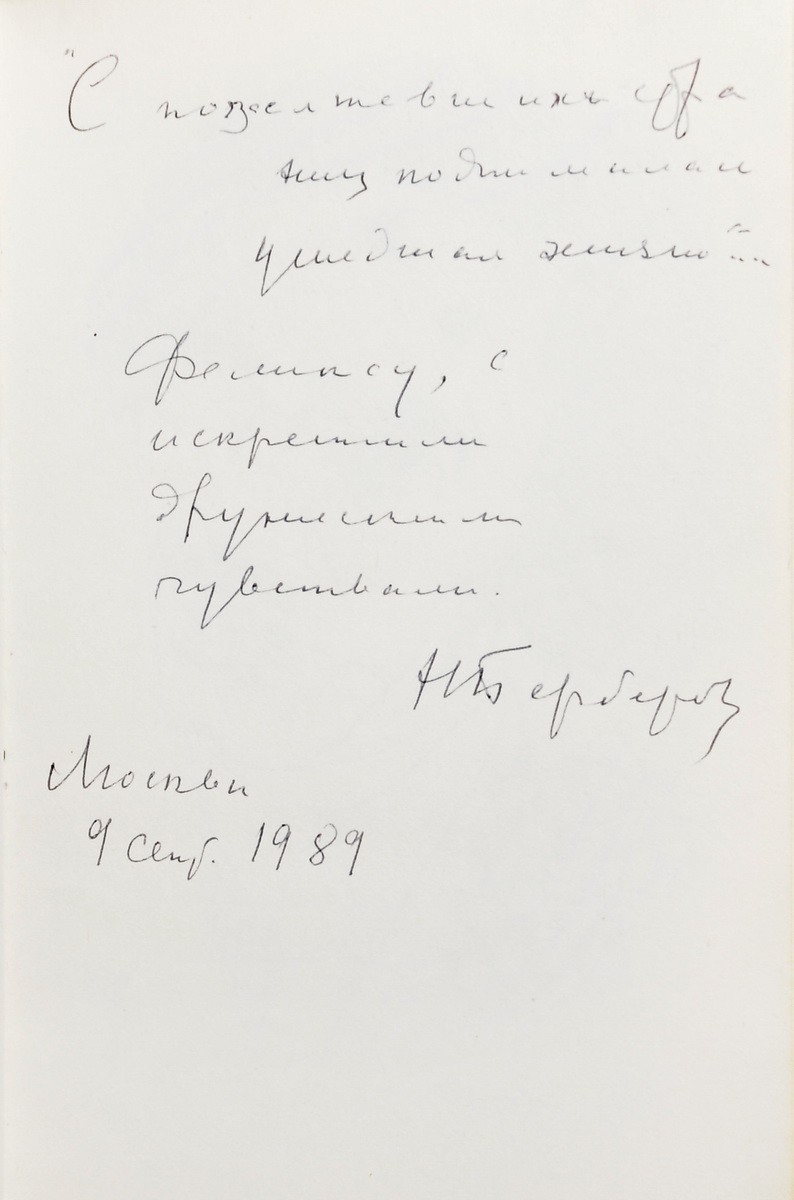 "С пожелтевших стра
ниц поднималась
ушедшая жизнь"...
Феликсу, с
искренними
дружескими
чувствами.
Н Берберова
Москва
9 сент. 1989